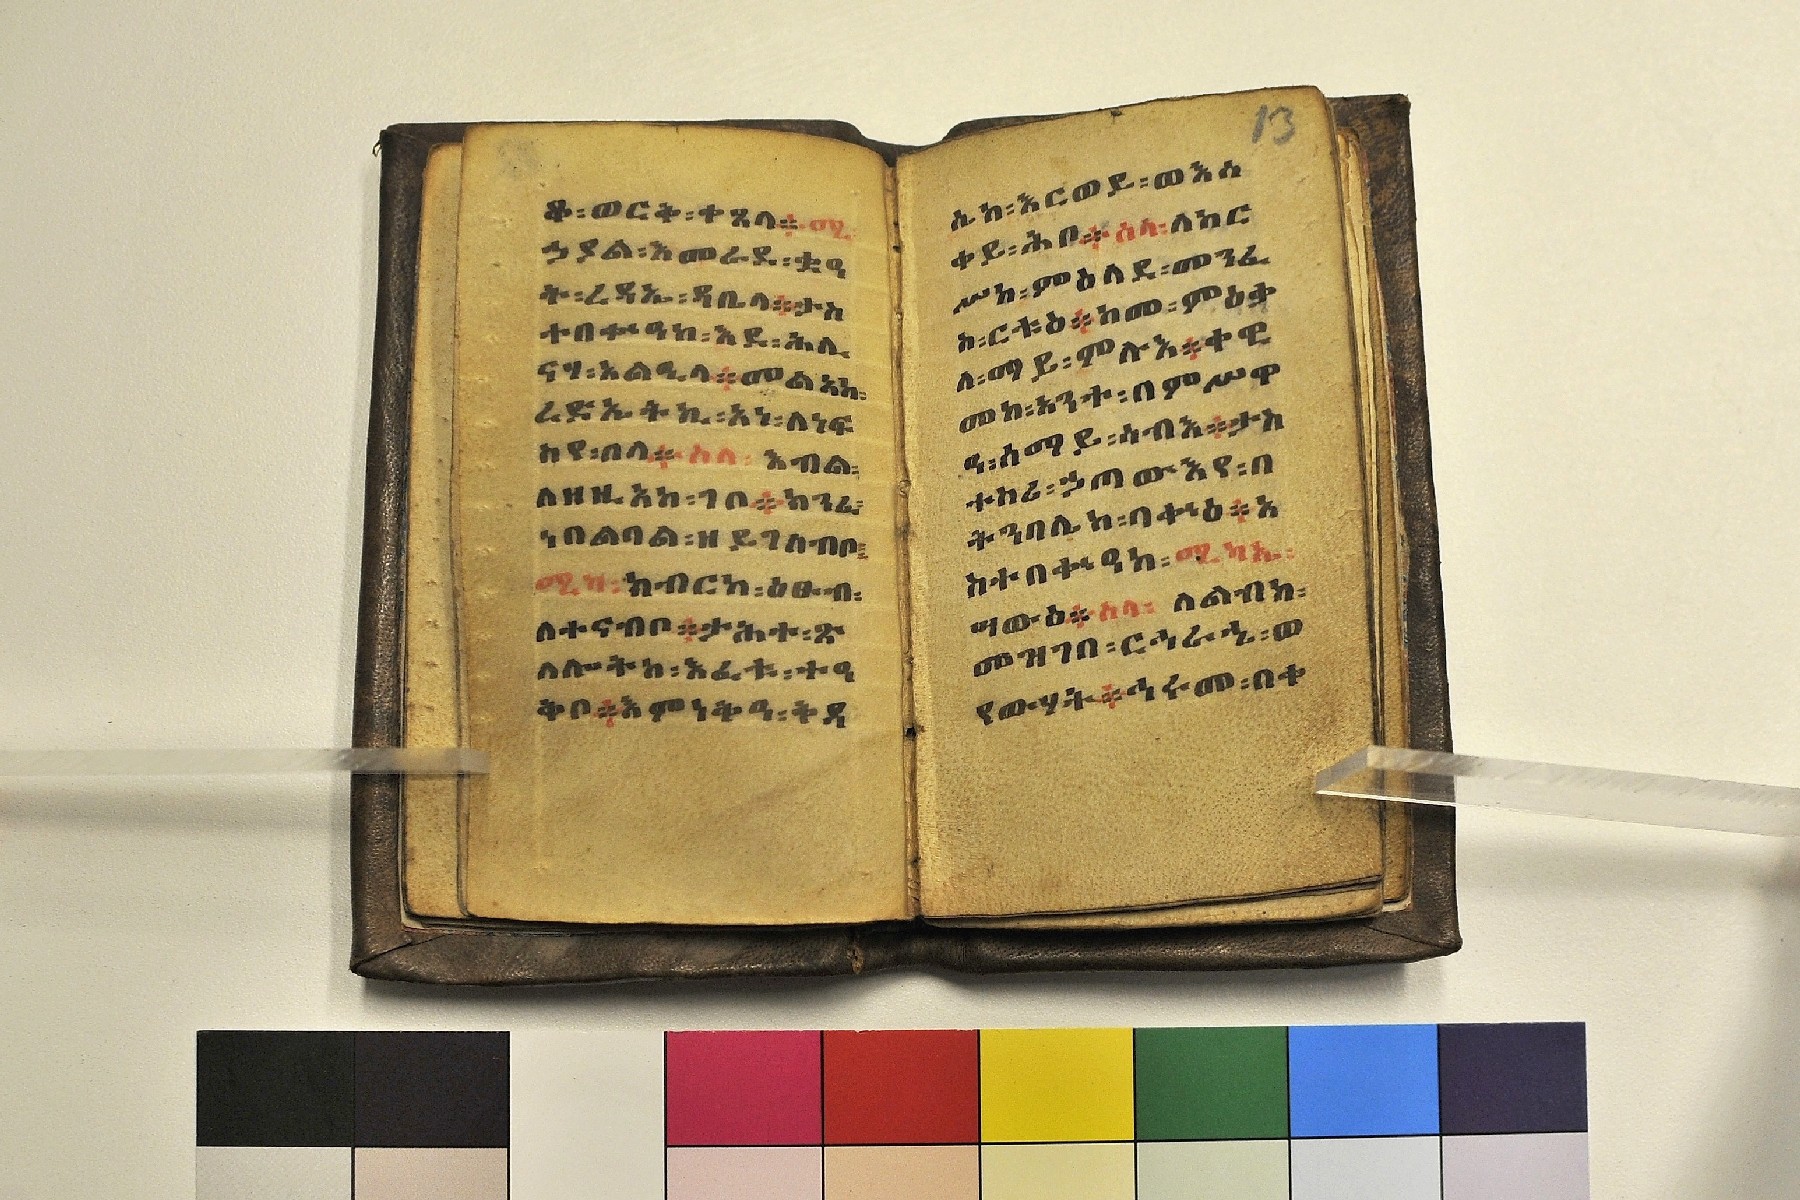 ቆ፡ወርቅ፡ተጼላ፨ሚ
ኃያል፡እመራደ፡ቋዓ
ት፡ረዳኤ፡ዳቤላ፨ታስ
ተበቍዓከ፡እደ፡ሕሊ
ናየ፡እልዔላ፨መልአከ፡
ረድኤትኪ፡እነ፡ለነፍ
ስየ፡በላ፨ሰላ፡እብል፡
ለዘዚአከ፡ገቦ፨ከንፈ፡
ነበልባል፡ዘይገለብቦ፨
ሚካ፡ክብርከ፡ዕፁብ፡
ለተናብቦ፨ታሕተ፡ጽ
ላሎትከ፡እፈቱ፡ተዓ
ቅቦ፨እምነቅዓ፡ትዳ
13
ሲከ፡እርወይ፡ወእሰ
ቀይ፡ሕቦ፨ሰላ፡ለከር
ሥከ፡ምዕላደ፡መንፈ
ስ፡ርቱዕ፨ከመ፡ምዕቃ
ለ፡ማይ፡ምሉእ፨ቀዊ
መከ፡አንተ፡በምሥዋ
ዓ፡ሰማይ፡ሳብእ፨ታስ
ተከሪ፡ኃጣውእየ፡በ
ትንበሊከ፡በቍዕ፨አ
ስተበቍዓከ፡ሚካኤ፡
ሣውዕ፨ሰላ፡ለልብከ፡
መዝገበ፡ርኅራኄ፡ወ
የውሃት፨ኅሩመ፡በቀ